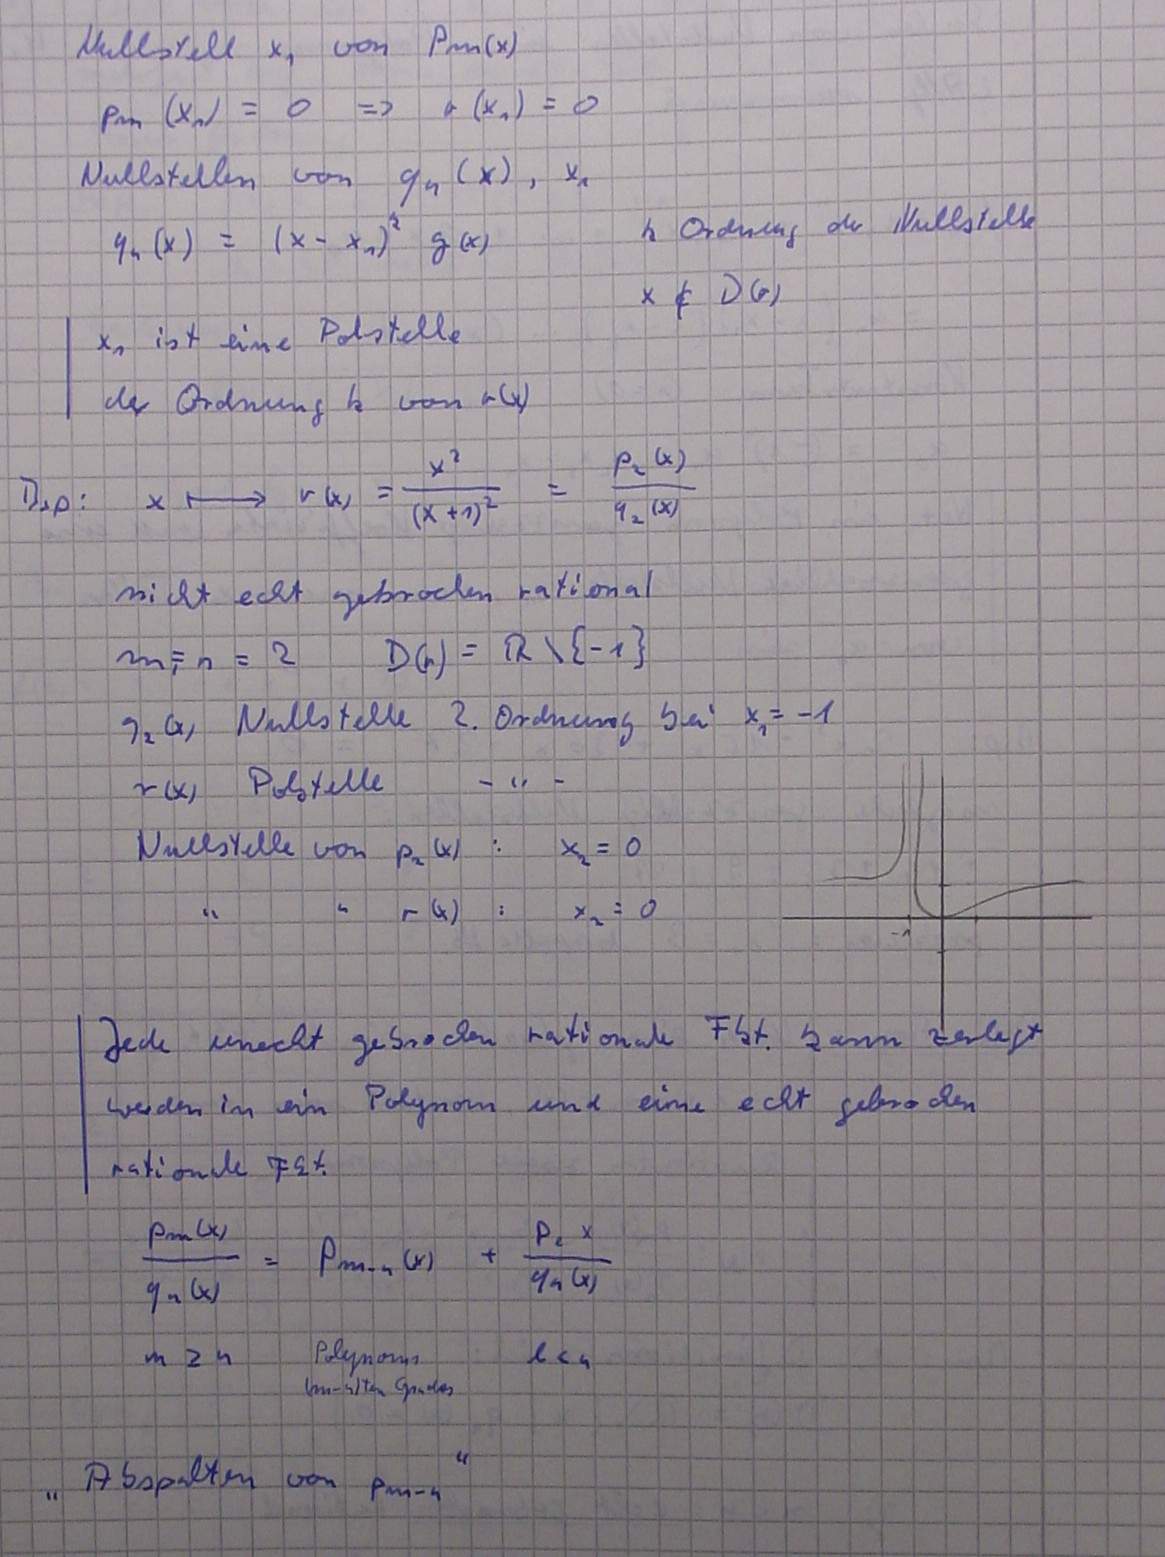 Nullstelle x₁ von Pm(x)
pm (x₁) = 0 => r(x₁) = 0
Nullstellen von qn(x), x₁
qn(x) = (x - x₁)^k g(x) k Ordnung der Nullstelle
x ∉ D(r)
x₁ ist eine Polstelle
der Ordnung k von r(x)
Bsp: x ⟼ r(x) = x²/(x+1)² = p₂(x)/q₂(x)
nicht echt gebrochen rational
m = n = 2 D(r) = ℝ \ {-1}
q₂(x) Nullstelle 2. Ordnung bei x₁ = -1
r(x) Polstelle - " -
Nullstelle von p₂(x) : x₂ = 0
" " r(x) : x₂ = 0
-1
Jede unecht gebrochen rationale Fkt. kann zerlegt
werden in ein Polynom und eine echt gebrochen
rationale Fkt.
pm(x)/qn(x) = Pm-n(x) + Pl x/qn(x)
m ≥ n Polynom l < n
(m-n)ten Grades
„Abspalten von pm-n“